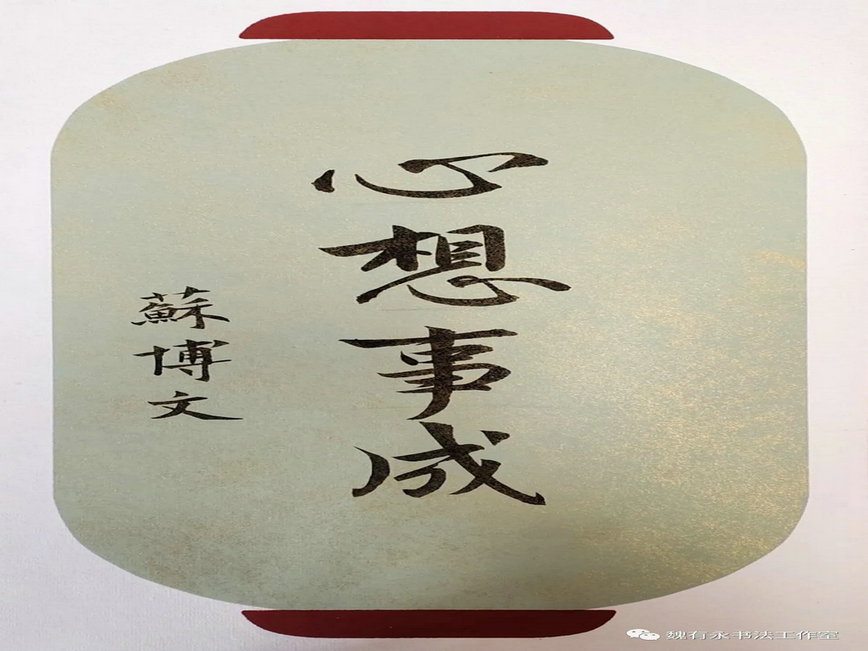 心想事成
蘇博文
魏有永书法工作室